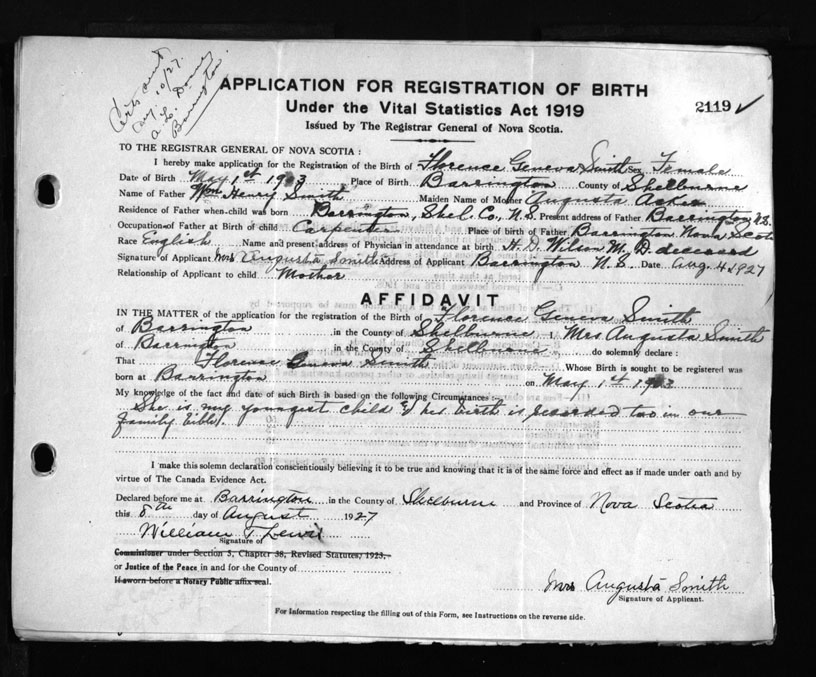 Certs sent
Aug. 10/27.
A. L.
Barrington
APPLICATION FOR REGISTRATION OF BIRTH
Under the Vital Statistics Act 1919
2119 ✓
Issued by The Registrar General of Nova Scotia.
TO THE REGISTRAR GENERAL OF NOVA SCOTIA :
I hereby make application for the Registration of the Birth of Florence Geneva Smith Sex Female
Date of Birth May 1st 1903 Place of Birth Barrington County of Shelburne
Name of Father Wm Henry Smith Maiden Name of Mother Augusta
Residence of Father when child was born Barrington, Shel. Co., N.S. Present address of Father Barrington N.S.
Occupation of Father at Birth of child Carpenter Place of birth of Father Barrington Nova Scot
Race English Name and present address of Physician in attendance at birth H. D. Wilson M. D. deceased
Signature of Applicant Mrs Augusta Smith Address of Applicant Barrington N.S. Date Aug. 4 1927
Relationship of Applicant to child Mother
AFFIDAVIT
IN THE MATTER of the application for the registration of the Birth of Florence Geneva Smith
of Barrington in the County of Shelburne I Mrs Augusta Smith
of Barrington in the County of Shelburne do solemnly declare :
That Florence Geneva Smith Whose Birth is sought to be registered was
born at Barrington on May 1st 1903
My knowledge of the fact and date of such Birth is based on the following Circumstances :—
She is my youngest child & her birth is recorded too in our
family bible.
I make this solemn declaration conscientiously believing it to be true and knowing that it is of the same force and effect as if made under oath and by
virtue of The Canada Evidence Act.
Declared before me at Barrington in the County of Shelburne and Province of Nova Scotia
this 8th day of August 1927
William T. Lewis
Signature of
Commissioner under Section 3, Chapter 38, Revised Statutes, 1923,
or Justice of the Peace in and for the County of
If sworn before a Notary Public affix seal.
Mrs Augusta Smith
Signature of Applicant.
For Information respecting the filling out of this Form, see Instructions on the reverse side.